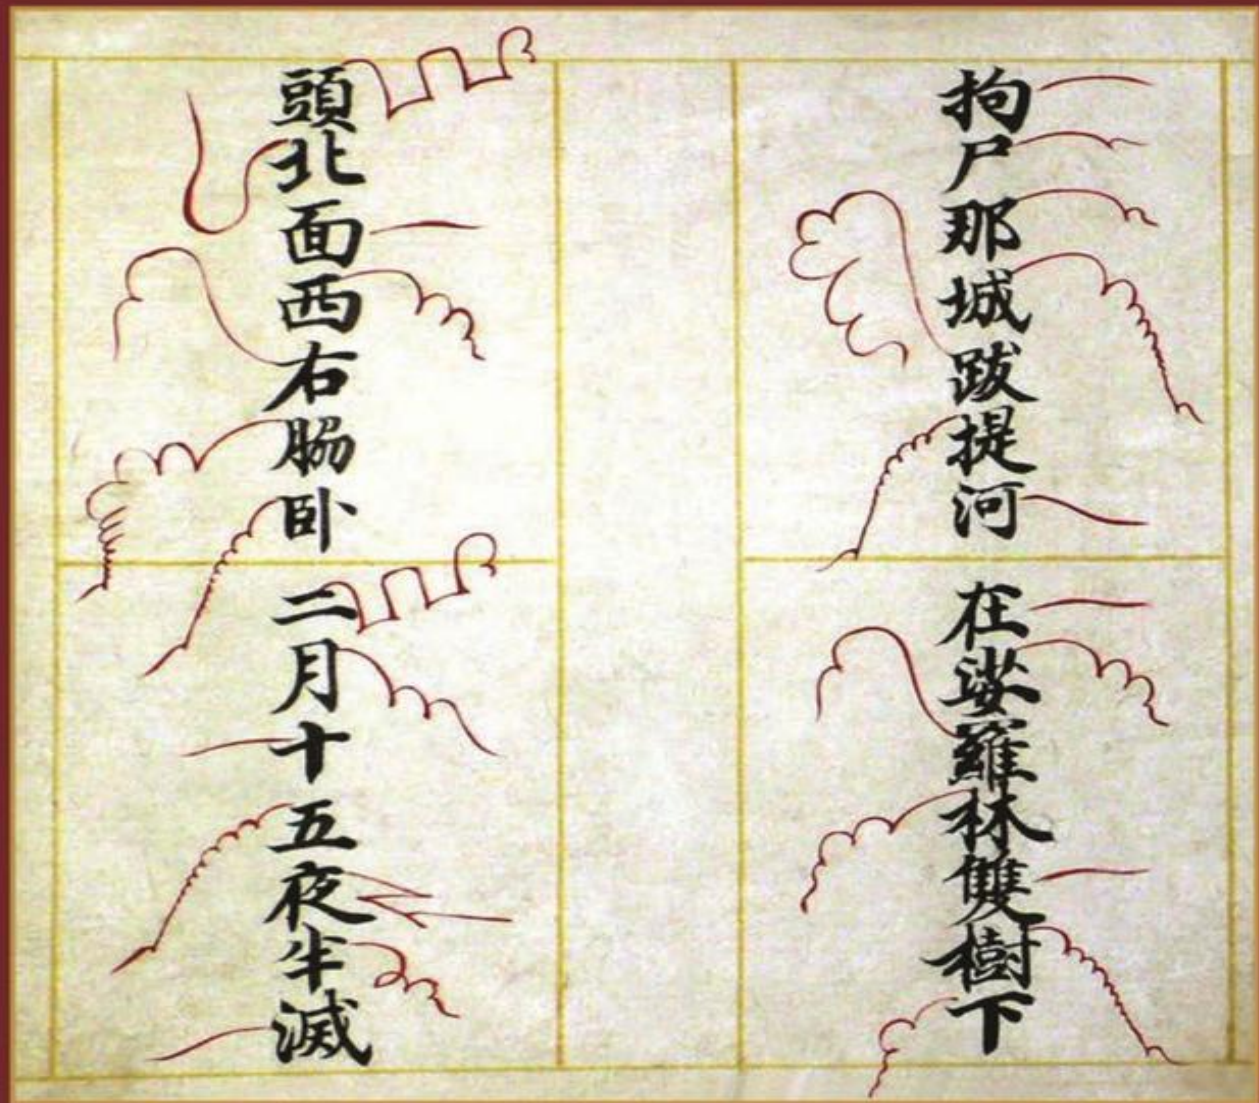 拘尸那城跋提河
在娑羅林雙樹下
頭北面西右脇卧
二月十五夜半滅